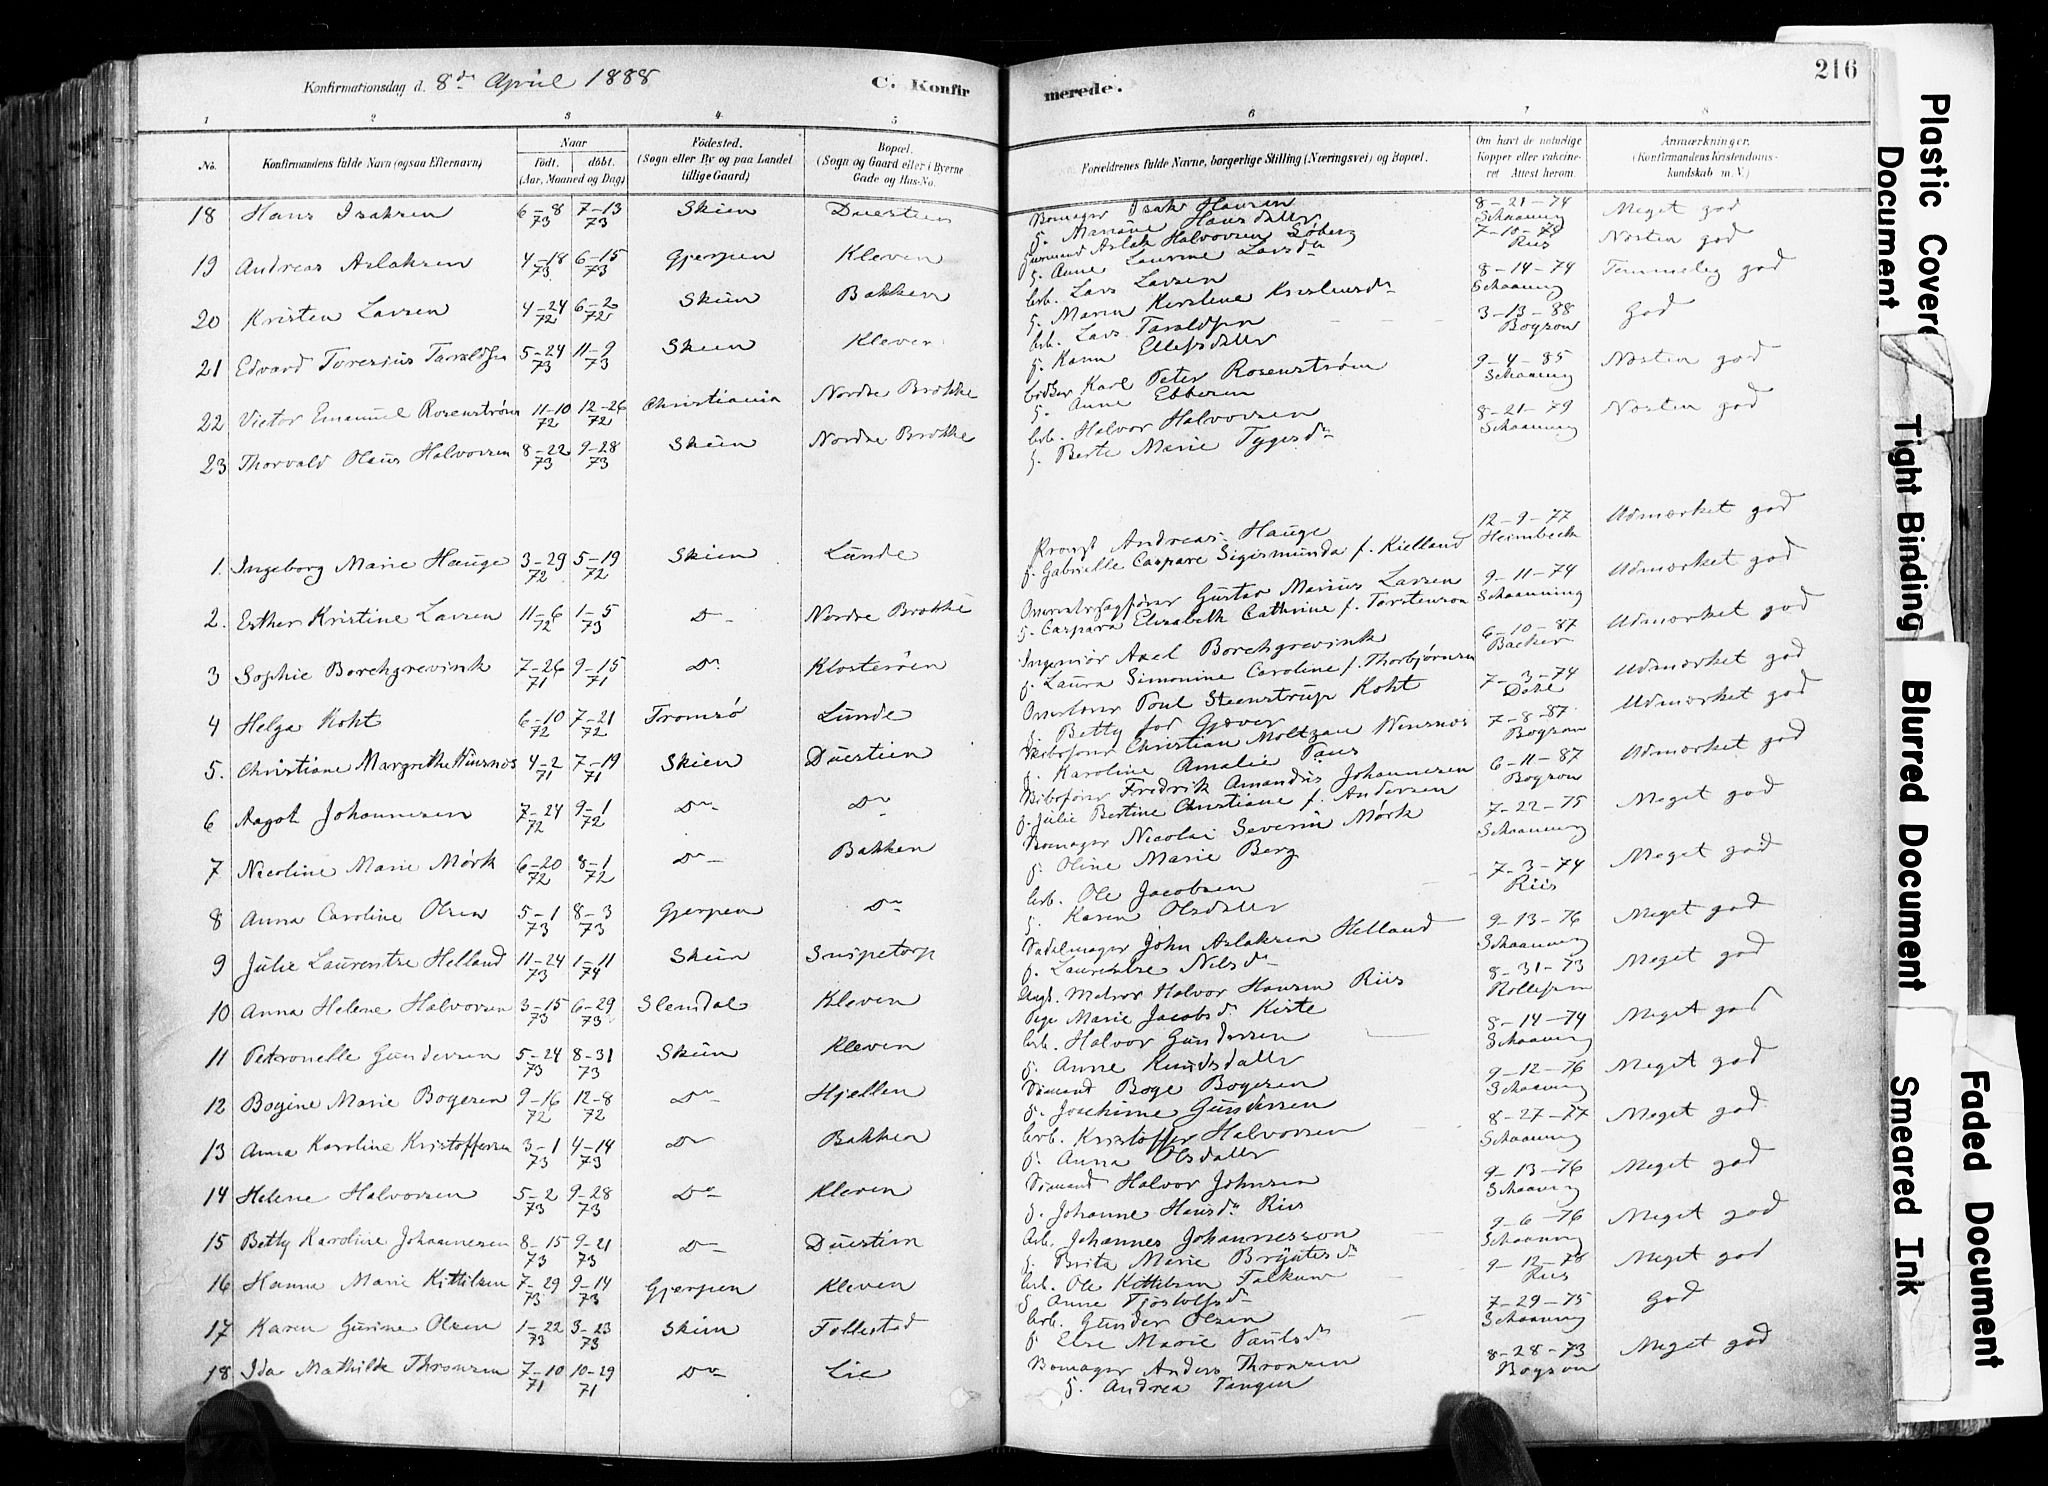 Konfirmationsdag d. 8de April 1888 C. Konfirmerede. 216
1 2 3 4 5 6 7 8
No. Konfirmandens fulde Navn (ogsaa Efternavn) Naar født, døbt. (Aar, Maaned og Dag) Fødested. (Sogn eller By og paa Landet tillige Gaard) Bopæl. (Sogn og Gaard eller i Byerne Gade og Hus-No. Forældrenes fulde Navne, borgerlige Stilling (Næringsvei) og Bopæl. Om havt de naturlige Kopper eller vaccineret Attest herom. Anmærkninger, (Konfirmandens Kristendomskundskab m. V.)
18 Hans Isaksen 6-8 73 7-13 73 Skien Duestien Isak Hansen H. Mariane Hansdatter 8-21-74 Schaaning Meget god
19 Andreas Aslaksen 4-18 73 6-15 73 Gjerpen Kleven Aslak Halvorsen Søberg H. Anne Laurine Larsdr Riis Næsten god
20 Kristen Larsen 4-24 72 6-2 72 Skien Bakken Arb. Lars Larsen H. Maren Kirstene Kristensdr 8-14-74 Schaaning Temmelig god
21 Edvard Toresius Taraldsen 5-24 73 11-9 73 Skien Kleven Arb. Lars Taraldsen H. Karen Ellefsdatter 3-13-88 Boyson God
22 Victor Emanuel Rosenstrøm 11-10 72 12-26 72 Christiania Nordre Brække Karl Peter Rosenstrøm H. Anne Ebbesen 9-4-85 Schaaning Næsten god
23 Thorvald Olaus Halvorsen 8-22 73 9-28 73 Skien Nordre Brække Arb. Halvor Halvorsen H. Berte Marie Tygesdr 8-21-79 Schaaning Næsten god
1. Ingeborg Marie Hauge 3-29 72 5-19 72 Skien Lunde Provst Andreas Hauge H. Gabrielle Caspare Sigismunda f. Kielland 12-9-77 Heimbeck Udmærket god
2. Esther Kristine Larsen 11-6 72 1-5 73 Do Nordre Brække Overretssagfører Gustav Marius Larsen H. Caspara Elisabeth Cathrine f. Torstenson 9-11-74 Schaanning Udmærket god
3 Sophie Borchgrevink 7-26 71 9-15 71 Do Klosterøen Ingeniør Axel Borchgrevink H. Laura Simonine Caroline f. Thorbjørnsen 6-10-87 Backer Udmærket god
4 Helga Koht 6-10 72 7-21 72 Tromsø Lunde Overlærer Poul Steenstrup Koht H. Betty fød Gjæver 7-3-74 Udmærket god
5. Christiane Margrethe Wiersnæs 4-2 71 7-19 71 Skien Duestien Skibsfører Christian Moltzau Wiersnæs H. Karoline Amalie 7-8-87 Boyson Udmærket god
6 Aagot Johannesen 7-24 72 9-1 72 Do Do Skibsfører Fredrik Amandus Johannesen H. Julie Bertine Christiane f. Andersen 6-11-87 Boyson Udmærket god
7 Nicoline Marie Mørk 6-20 72 8-1 72 Do Bakken Nicolai Severin Mørk H. Oline Marie Berg 7-22-75 Schaaning Meget god
8 Anna Caroline Olsen 5-1 73 8-3 73 Gjerpen Do Arb. Ole Jacobsen H. Karen Olsdatter 7-3-74 Riis Meget god
9 Julie Laurentze Helland 11-24 73 1-11 74 Skien Snipetorp Sadelmager John Aslaksen Helland H. Laurentze Nilsdr 9-13-76 Schaaning Meget god
10 Anna Helene Halvorsen 3-15 73 6-29 73 Slemdal Kleven Ungk. Matros Halvor Hansen Riis Pige Marie Jacobsdr Kiste 8-31-73 Meget god
11 Petronelle Gundersen 5-24 73 8-31 73 Skien Kleven Arb. Halvor Gundersen H. Anne Knudsdatter 8-14-74 Schaaning Meget god
12 Bogine Marie Bogesen 9-16 72 12-8 72 Do Hjellen Sømand Boge Bogesen H. Joachime Gundersen 9-12-76 Schaaning Meget god
13 Anna Karoline Kristoffersen 3-1 73 4-14 73 Do Bakken Arb. Kristoffer Halvorsen H. Anna Olsdatter 8-27-77 Schaaning Meget god
14 Helene Halvorsen 5-2 73 9-28 73 Do Kleven Sømand Halvor Johnsen H. Johanne Hansdr Riis 9-13-76 Schaaning Meget god
15 Betty Karoline Johannesen 8-15 73 9-21 73 Do Duestien Arb. Johannes Johannesson H. Brita Marie Bryntesdr 9-6-76 Schaaning Meget god
16 Hanna Marie Kittilsen 7-29 73 9-14 73 Gjerpen Kleven Arb. Ole Kittilsen Falkum H. Anne Tjostolfsdr 9-12-78 Riis Meget god
17 Karen Gurine Olsen 1-22 73 3-23 73 Skien Follestad Arb. Gunder Olsen H. Else Marie Paulsdr 7-29-75 Schaaning God
18 Ida Mathilde Thronsen 7-10 71 10-29 71 Do Lie Anders Thronsen H. Andrea Tangen 8-28-73 Boyson Meget god
Plastic Covered Document
Tight Binding
Blurred Document
Faded Document
Smeared Ink